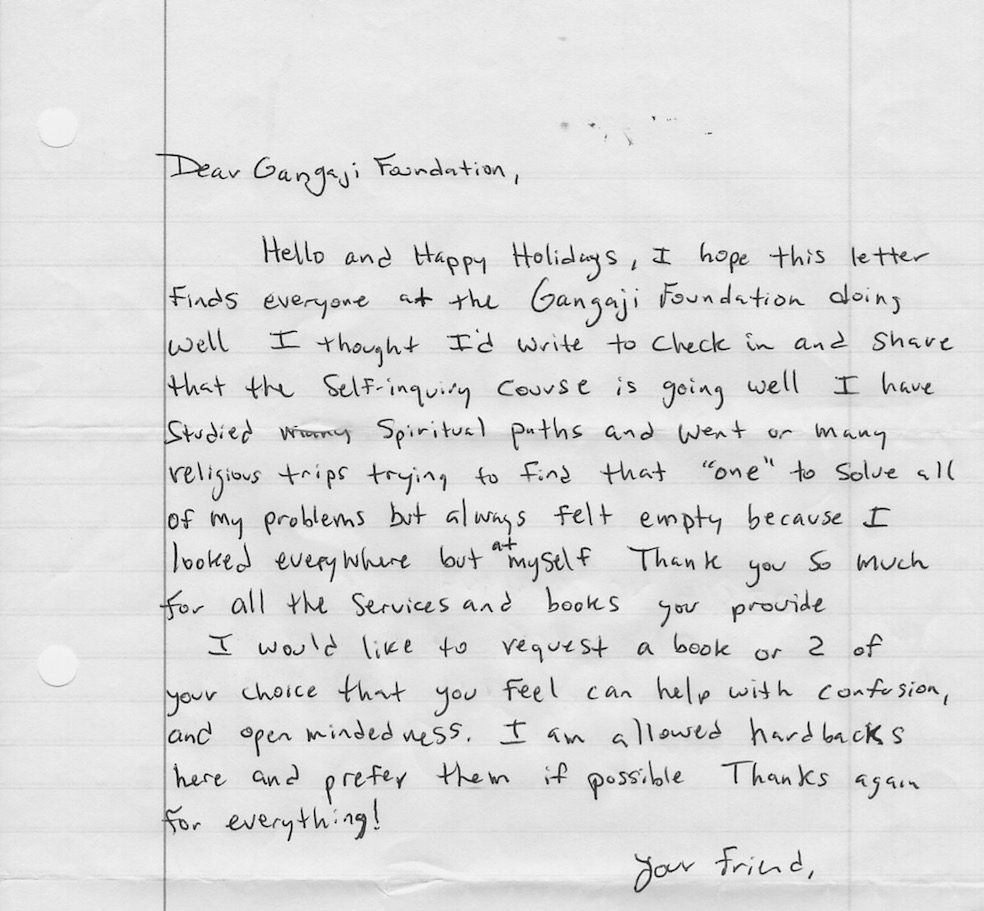 Dear Gangaji Foundation,
Hello and Happy Holidays, I hope this letter
finds everyone at the Gangaji Foundation doing
well I thought I'd write to check in and share
that the Self-inquiry course is going well I have
Studied many Spiritual paths and went or many
religious trips trying to find that "one" to solve all
of my problems but always felt empty because I
looked everywhere but at myself Thank you so much
for all the services and books you provide
I would like to request a book or 2 of
your choice that you feel can help with confusion,
and open mindedness. I am allowed hardbacks
here and prefer them if possible Thanks again
for everything!
Your friend,